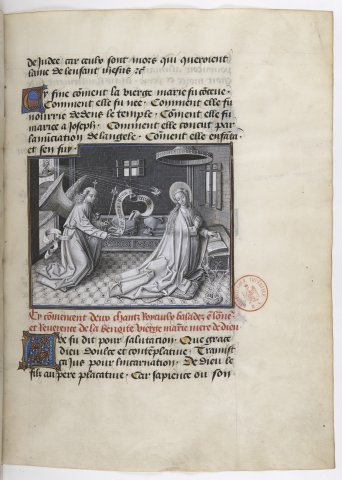 de Judee car ceulx sont mors qui queroient
lame de lenfant ihesus &c
Cy fine cōment la vierge marie fu cōceue ·
Comment elle fu nee · Comment elle fu
nourrie dedens le temple · Cōment elle fu
mariee a Joseph · Cōment elle conceut par
lanūciation de langele · Cōment elle enfāta
et sen fuy ·
Cy cōmencent deux chantz royaulx balades en lonneur
et Reverence de la benoite vierge marie mere de dieu
Ave fu dit pour salutacion · Que grace
dieu doulce et contēplative · Tramist
ca jus pour lincarnation · De dieu le
filz au pere placative · Car sapience ou son